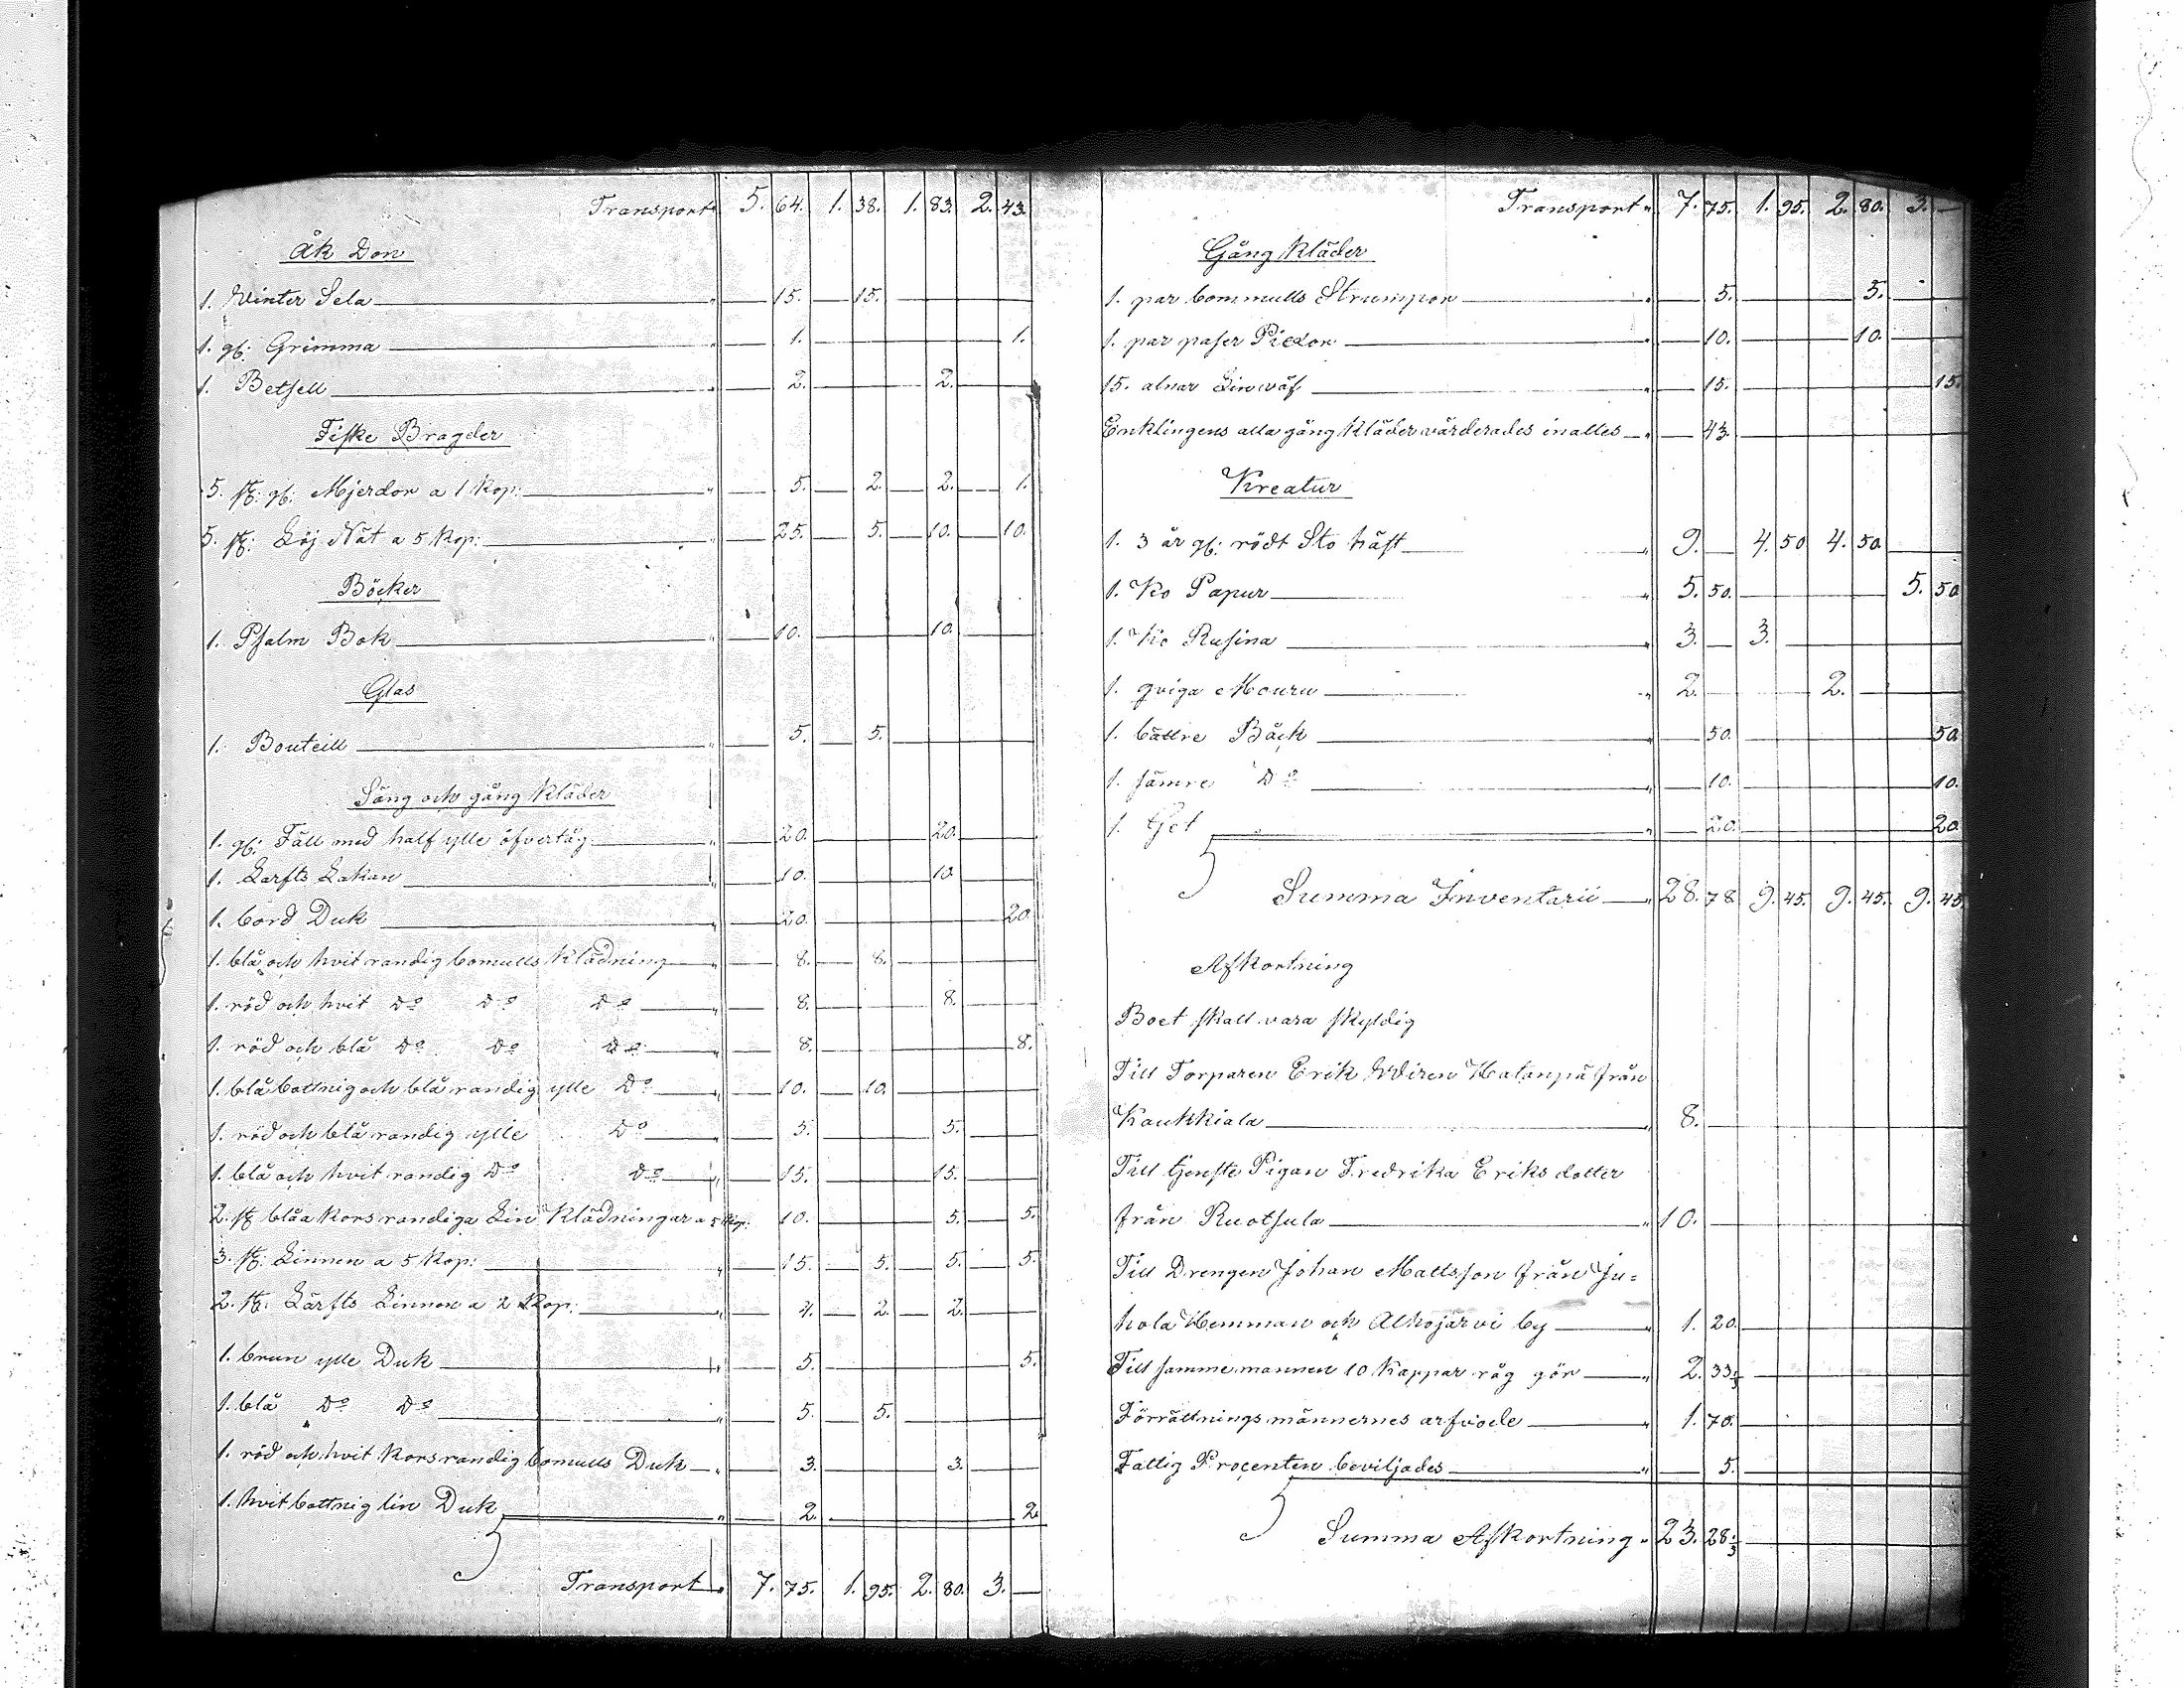 Transport 5. 64. 1. 38. 1. 83. 2. 43.
Åk Don
1. Winter Sela 15. 15.
1. gl: Grimma 1. 1.
1. Betsell 2. 2.
Fiske Bragder
5. st: gl: Mjerdor a 1 Kop: 5. 2. 2. 1.
5. st: Löj Nät a 5 Kop: 25. 5. 10. 10.
Böcker
1. Psalm Bok 10. 10.
Glas
1. Bouteill 5. 5.
Säng och gång Kläder
1. gl: Fäll med half ylle öfvertåg 20. 20.
1. Larfts Lakan 10. 10
1. bord Duk 20. 20.
1. blå och hvit randig bomulls Klädning 8. 8.
1. röd och hvit Do Do Do 8. 8.
1. röd och blå Do Do Do 8. 8.
1. blå bottnig och blå randig ylle Do 10. 10.
1. röd och blå randig ylle Do 5. 5.
1. blå och hvit randig Do Do 15. 15.
2. st blåa Kors randiga Lin Klädningar a 5 Kop: 10. 5. 5.
3. st: Linnen a 5 Kop: 15. 5. 5. 5.
2. st: Lärfts Linnen a 2 Kop: 4. 2. 2.
1. brun ylle Duk 5. 5.
1. blå Do Do 5. 5.
1. röd och hvit Kors randig bomulls Duk 3. 3.
1. hvit bottnig lin Duk 2. 2
Transport 7. 75. 1. 95. 2. 80. 3. —
Transport 7. 75. 1. 95. 2. 80. 3. —
Gång Kläder
1. par bommulls Strumpor 5. 5.
1. par paser Piexor 10. 10.
15. alnar Linväf 15. 15.
Enklingens alla gång Kläder värderades inalles 43.
Kreatur
1. 3 år gl: rödt Sto häst 9. — 4. 50 4. 50
1. Ko Papur 5. 50. 5. 50
1. Ko Rusina 3. — 3.
1. qviga Mouru 2. 2.
1. bättre Bäck 50. 50
1. sämre Do 10. 10.
1. Get 20. 20
Summa Inventarii 28. 78 9. 45. 9. 45. 9. 45.
Afkortning
Boet skall vara skyldig
Till Torparen Erik Wiren Katanpä från
Kaukkiala 8.
Till tjenste Pigan Fredrika Eriks dotter
från Ruotsula 10.
Till Drengen Johan Mattsson från Ju=
hola Hemman och Alhojärvi by 1. 20.
Till samme mannen 10 Kappar råg gör 2. 33 1/3
Förrättnings männernes arfvode 1. 70.
Fattig Procenten beviljades 5.
Summa Afkortning 23. 28 1/3